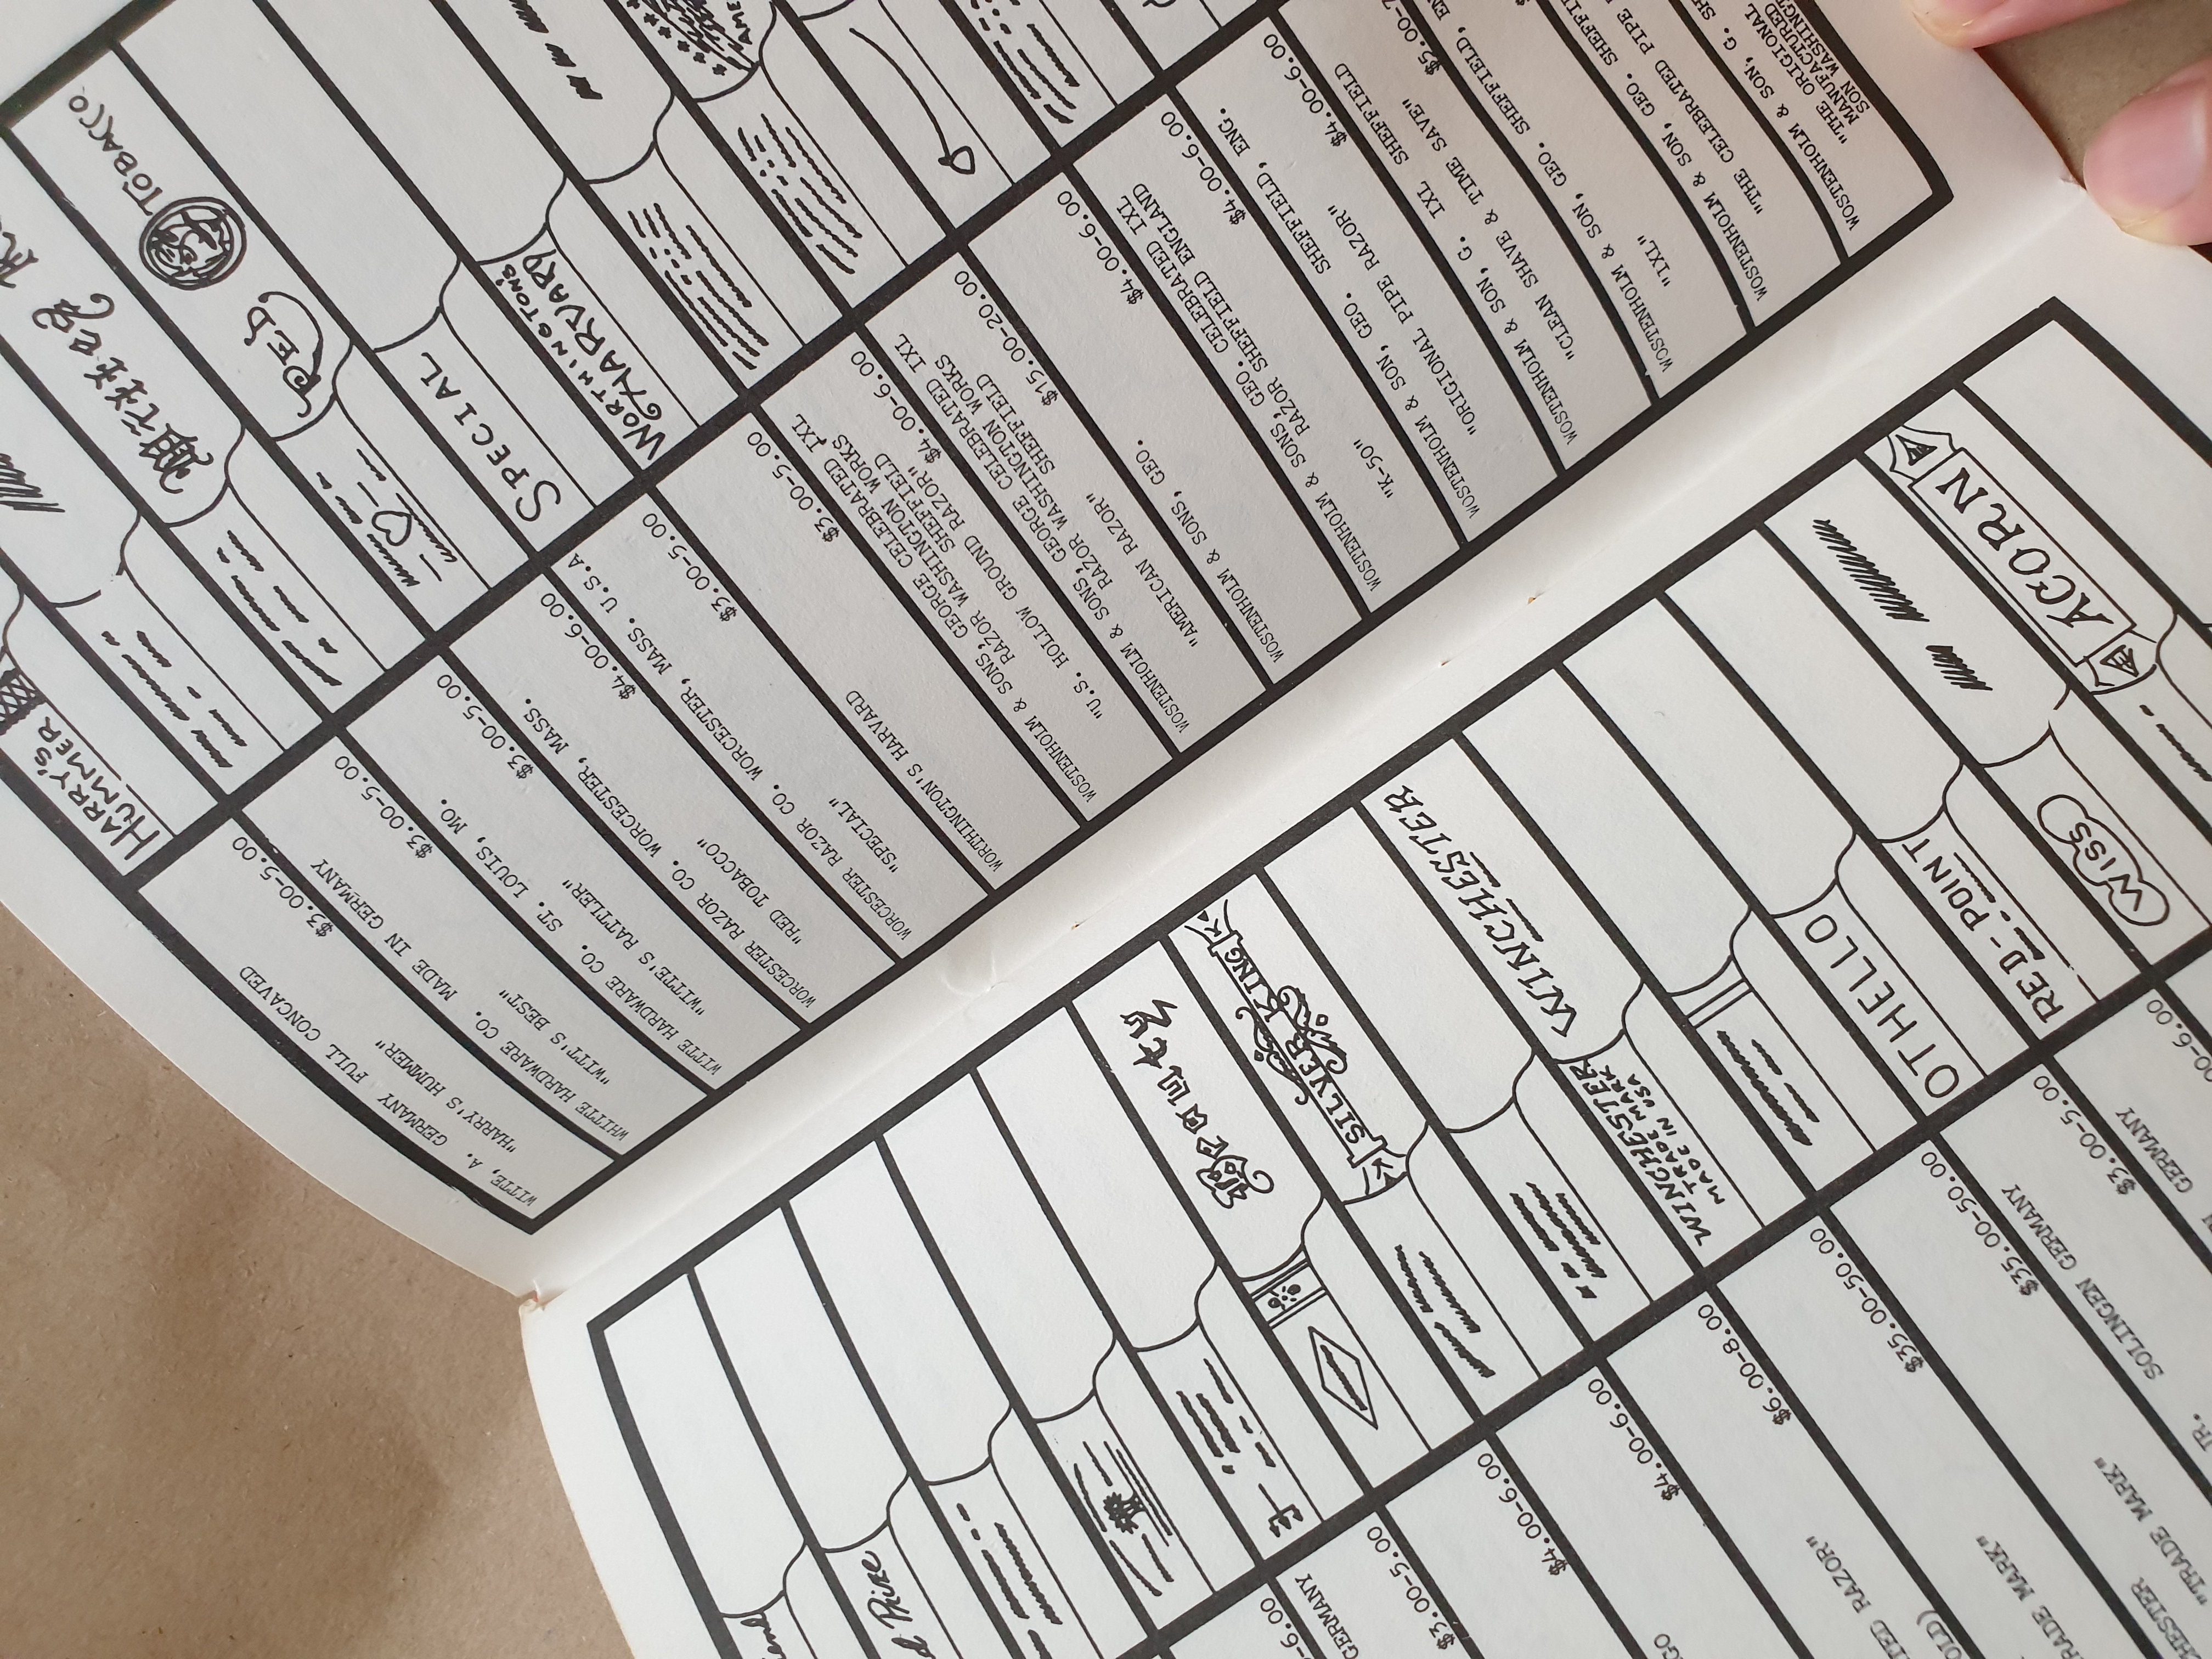 GERMANY
$3.00-5.00
$4.00-6.00
Beauty
$4.00-6.00
K SILVER KING K
RAZOR"
$6.00-8.00
WINCHESTER
WINCHESTER
TRADE MARK
MADE IN USA
TRADE MARK"
$35.00-50.00
"TRADE MARK"
$35.00-50.00
OTHELLO
SOLINGEN GERMANY
$3.00-5.00
RED-POINT
GERMANY
WISS
ACORN
WITTE, A. GERMANY
"HARRY'S HUMMER" FULL CONCAVED
$3.00-5.00
HARRY'S
HUMMER
WHITTE HARDWARE CO. MADE IN GERMANY
"WITT'S BEST"
$3.00-5.00
WITTE HARDWARE CO. ST. LOUIS, MO.
"WITTE'S RATTLER"
$3.00-5.00
WORCESTER RAZOR CO. WORCESTER, MASS.
"RED TOBACCO"
$4.00-6.00
RED TOBACCO
WORCESTER RAZOR CO. WORCESTER, MASS. U.S.A
"SPECIAL"
$3.00-5.00
SPECIAL
WORTHINGTON'S HARVARD
$3.00-5.00
WORTHINGTON'S
HARVARD
WOSTENHOLM & SONS, GEORGE CELEBRATED IXL
RAZOR WASHINGTON WORKS
SHEFFIELD
"U.S. HOLLOW GROUND RAZOR"
$4.00-6.00
WOSTENHOLM & SONS, GEORGE CELEBRATED IXL
RAZOR WASHINGTON WORKS
SHEFFIELD
"AMERICAN RAZOR"
$15.00-20.00
WOSTENHOLM & SONS, GEO.
$4.00-6.00
WOSTENHOLM & SONS, GEO. CELEBRATED IXL
RAZOR SHEFFIELD ENGLAND
"K-50"
$4.00-6.00
WOSTENHOLM & SON, GEO. SHEFFIELD, ENG.
"ORIGIONAL PIPE RAZOR"
$4.00-6.00
WOSTENHOLM & SON, G. IXL SHEFFIELD
"CLEAN SHAVE & TIME SAVE"
WOSTENHOLM & SON, GEO. SHEFFIELD,
"IXL"
WOSTENHOLM & SON, GEO.
"THE CELEBRATED PIPE
WOSTENHOLM & SON, G.
"THE ORIGIONAL
MANUFACTURED
SON WASHINGT